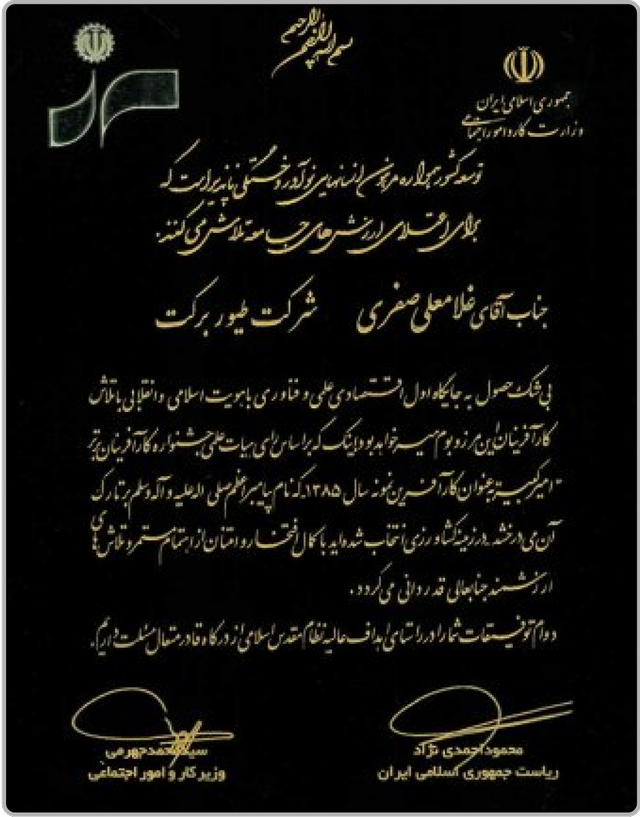 بسم الله الرحمن الرحیم
جمهوری اسلامی ایران
وزارت کار و امور اجتماعی
توسعه کشور همواره مرهون انسانهایی نوآور و خستگی ناپذیر است که
برای اعتلای ارزش های جامعه تلاش می کنند.
جناب آقای غلامعلی صفری شرکت طیور برکت
بی شک حصول به جایگاه اول اقتصادی علمی و فناوری با هویت اسلامی و انقلابی با تلاش
کارآفرینان این مرز و بوم میسر خواهد بود اینک که براساس رای هیات علمی جشنواره کارآفرینان برتر
"امیرکبیر" به عنوان کارآفرین نمونه سال ۱۳۸۵ که نام پیامبر اعظم صلی الله علیه و آله وسلم بر تارک
آن می درخشد در زمینه کشاورزی انتخاب شده اید با کمال افتخار و امتنان از اهتمام مستمر و تلاش های
ارزشمند جنابعالی قدردانی می گردد.
دوام توفیقات شما را در راستای اهداف عالیه نظام مقدس اسلامی از درگاه قادر متعال مسئلت داریم.
محمود احمدی نژاد
ریاست جمهوری اسلامی ایران
سید محمد جهرمی
وزیر کار و امور اجتماعی